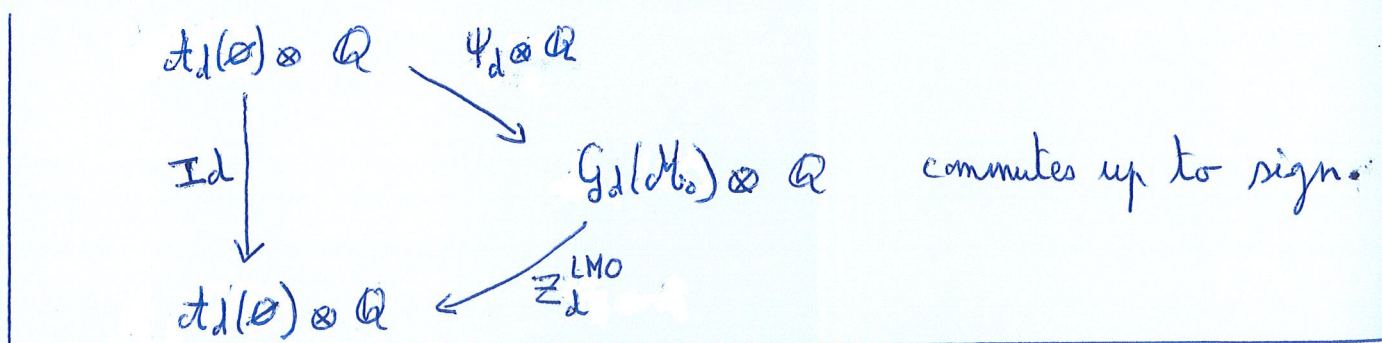 𝒜_d(∅) ⊗ ℚ Ψ_d ⊗ ℚ
Id 𝒢_d(ℳ_0) ⊗ ℚ commutes up to sign.
Z_d^{LMO}
𝒜_d(∅) ⊗ ℚ